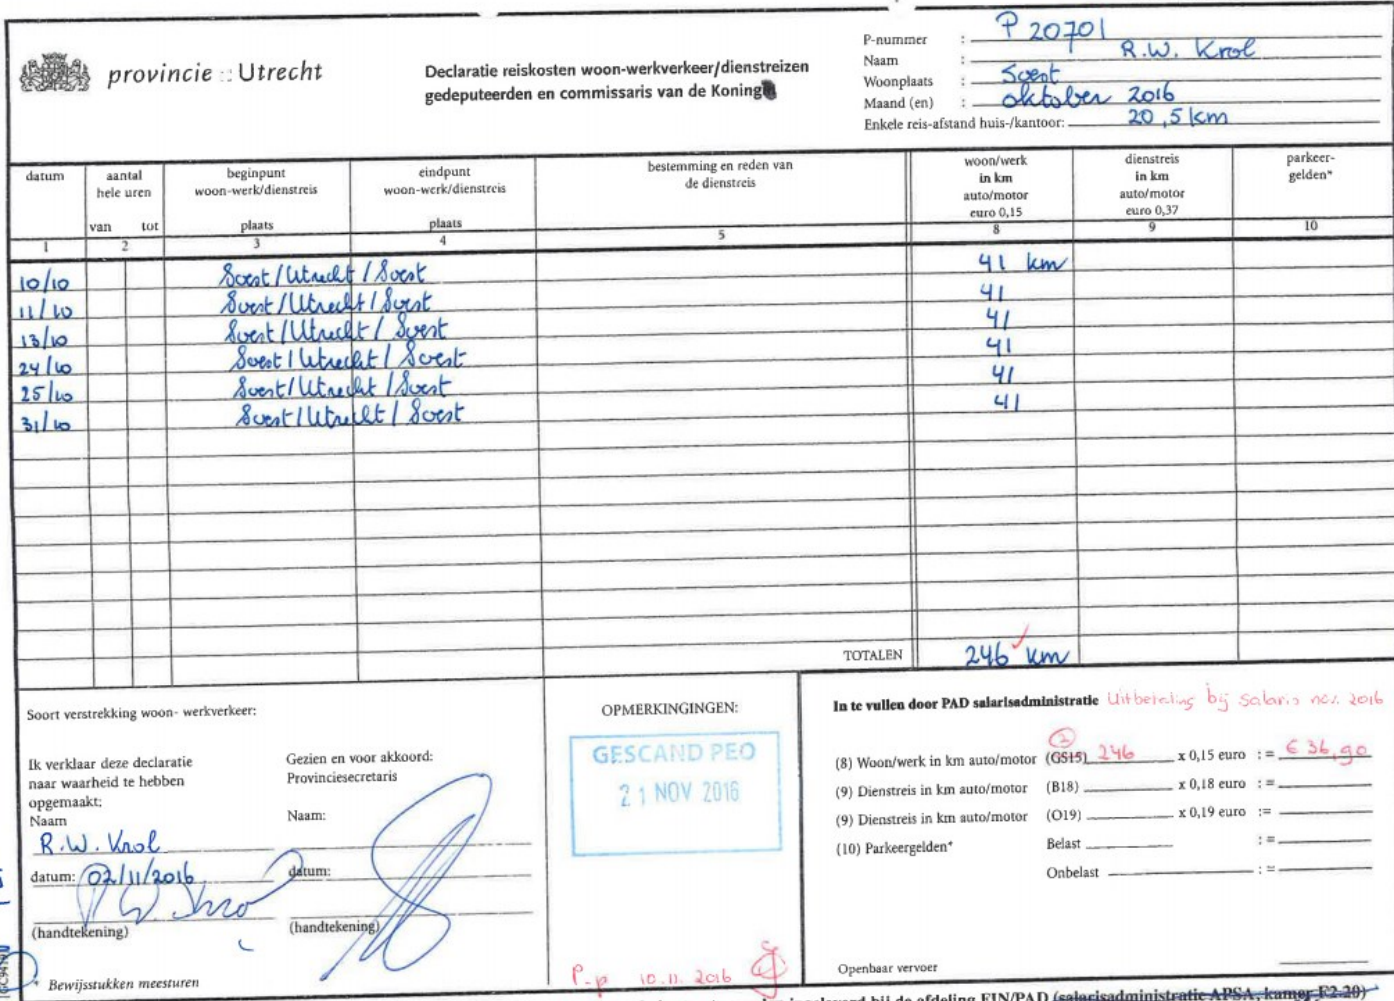 provincie :: Utrecht
Declaratie reiskosten woon-werkverkeer/dienstreizen
gedeputeerden en commissaris van de Koning
P-nummer : P 20701
Naam : R.W. Krol
Woonplaats : Soest
Maand (en) : oktober 2016
Enkele reis-afstand huis-/kantoor: 20,5 km
datum
aantal hele uren
van tot
beginpunt
woon-werk/dienstreis
plaats
eindpunt
woon-werk/dienstreis
plaats
bestemming en reden van
de dienstreis
woon/werk
in km
auto/motor
euro 0,15
dienstreis
in km
auto/motor
euro 0,37
parkeer-
gelden*
1 2 3 4 5 8 9 10
10/10 Soest/Utrecht/Soest 41 km
11/10 Soest/Utrecht/Soest 41
13/10 Soest/Utrecht/Soest 41
24/10 Soest/Utrecht/Soest 41
25/10 Soest/Utrecht/Soest 41
31/10 Soest/Utrecht/Soest 41
TOTALEN 246 km
Soort verstrekking woon- werkverkeer:
Ik verklaar deze declaratie
naar waarheid te hebben
opgemaakt:
Naam
R.W. Krol
datum: 02/11/2016
(handtekening)
* Bewijsstukken meesturen
Gezien en voor akkoord:
Provinciesecretaris
Naam:
datum:
(handtekening)
OPMERKINGINGEN:
GESCAND PEO
21 NOV 2016
P-p 10.11.2016
In te vullen door PAD salarisadministratie Uitbetaling bij salaris nov. 2016
(8) Woon/werk in km auto/motor (GS15) 246 x 0,15 euro := € 36,90
(9) Dienstreis in km auto/motor (B18) x 0,18 euro :=
(9) Dienstreis in km auto/motor (O19) x 0,19 euro :=
(10) Parkeergelden* Belast :=
Onbelast :=
Openbaar vervoer
bij de afdeling FIN/PAD (salarisadministratie APSA, kamer F2.20)